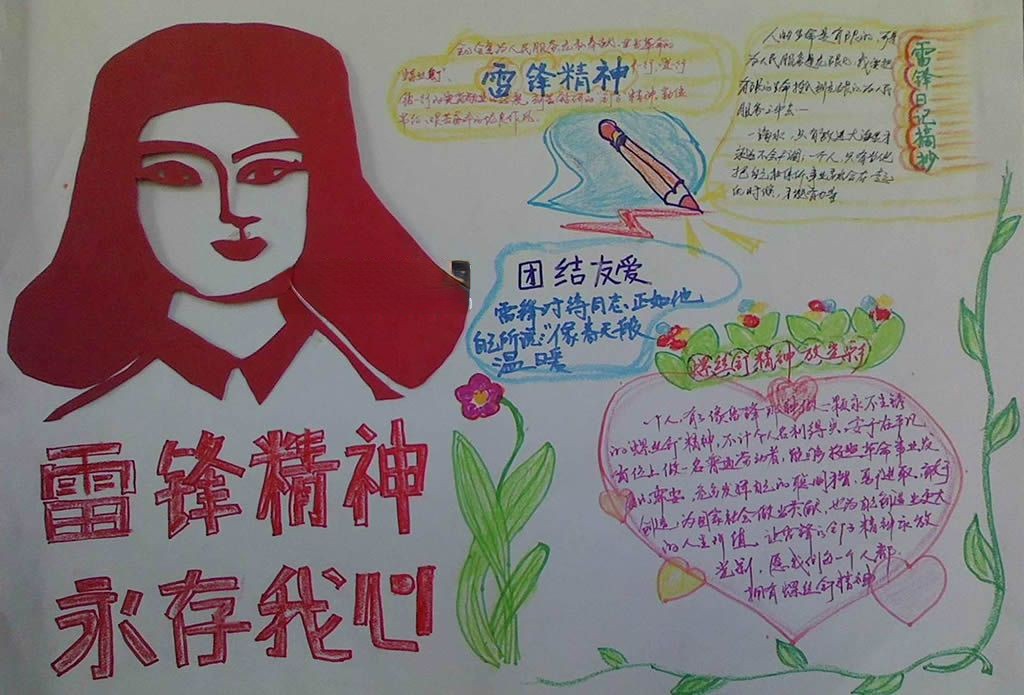 全心全意为人民服务
雷锋精神
雷锋日记摘抄
人的生命是有限的，可是
为人民服务是无限的，我要把
有限的生命投入到无限的为人民
服务之中去
一滴水，只有放进大海里才
永远不会干涸，一个人，只有当他
把自己和集体事业融合在一起
的时候，才能有力量
团结友爱
雷锋对待同志，正如他
自己所说："像春天般
温暖
螺丝钉精神放光彩
一个人，有像雷锋那种做一颗永不生锈
的"螺丝钉"精神，不计个人名利得失，安于在平凡
岗位上做一名普通劳动者
发挥自己的聪明才智
创造，为国家社会做出贡献，也为自己创造出更大
的人生价值，让雷锋的钉子精神永放
光彩，愿我们每一个人都
拥有螺丝钉精神
雷锋精神
永存我心